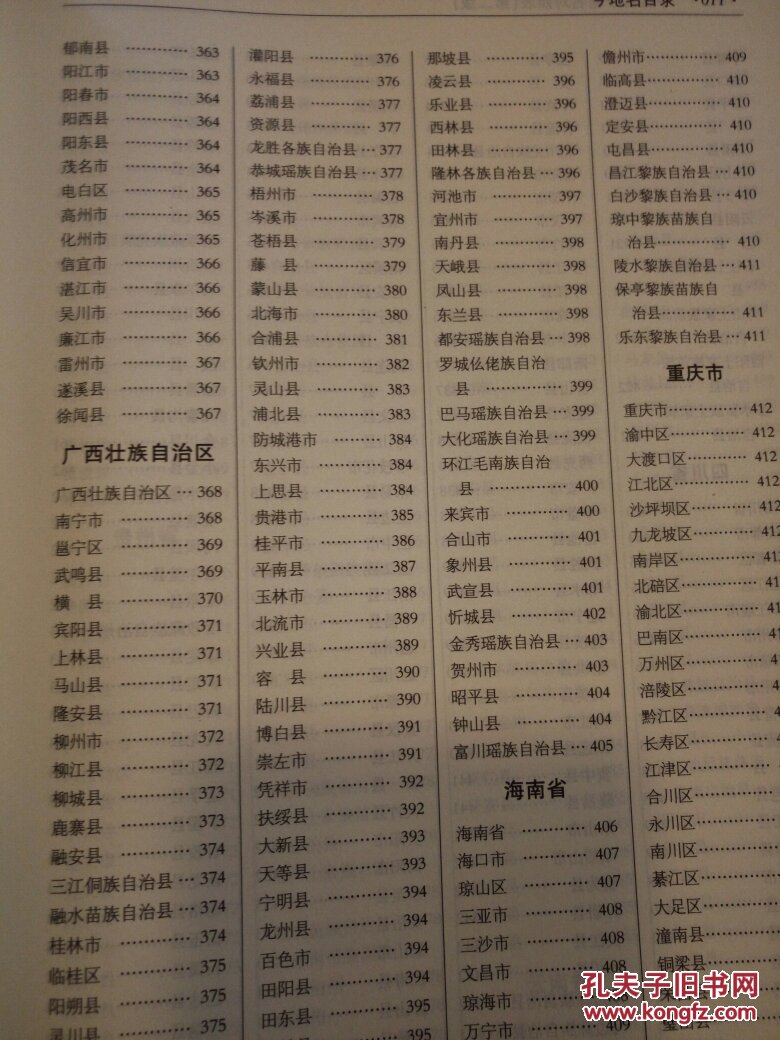 今地名目录 ·011·
郁南县 ………… 363
阳江市 ………… 363
阳春市 ………… 364
阳西县 ………… 364
阳东县 ………… 364
茂名市 ………… 364
电白区 ………… 365
高州市 ………… 365
化州市 ………… 365
信宜市 ………… 366
湛江市 ………… 366
吴川市 ………… 366
廉江市 ………… 366
雷州市 ………… 367
遂溪县 ………… 367
徐闻县 ………… 367
广西壮族自治区
广西壮族自治区 … 368
南宁市 ………… 368
邕宁区 ………… 369
武鸣县 ………… 369
横 县 ………… 370
宾阳县 ………… 371
上林县 ………… 371
马山县 ………… 371
隆安县 ………… 371
柳州市 ………… 372
柳江县 ………… 372
柳城县 ………… 373
鹿寨县 ………… 373
融安县 ………… 374
三江侗族自治县 … 374
融水苗族自治县 … 374
桂林市 ………… 374
临桂区 ………… 375
阳朔县 ………… 375
灵川县 ………… 375
灌阳县 ………… 376
永福县 ………… 376
荔浦县 ………… 377
资源县 ………… 377
龙胜各族自治县 … 377
恭城瑶族自治县 … 377
梧州市 ………… 378
岑溪市 ………… 378
苍梧县 ………… 379
藤 县 ………… 379
蒙山县 ………… 380
北海市 ………… 380
合浦县 ………… 381
钦州市 ………… 382
灵山县 ………… 383
浦北县 ………… 383
防城港市 ……… 384
东兴市 ………… 384
上思县 ………… 384
贵港市 ………… 385
桂平市 ………… 386
平南县 ………… 387
玉林市 ………… 388
北流市 ………… 389
兴业县 ………… 389
容 县 ………… 390
陆川县 ………… 390
博白县 ………… 391
崇左市 ………… 391
凭祥市 ………… 392
扶绥县 ………… 392
大新县 ………… 393
天等县 ………… 393
宁明县 ………… 394
龙州县 ………… 394
百色市 ………… 394
田阳县 ………… 395
田东县 ………… 395
395
那坡县 ………… 395
凌云县 ………… 396
乐业县 ………… 396
西林县 ………… 396
田林县 ………… 396
隆林各族自治县 … 396
河池市 ………… 397
宜州市 ………… 397
南丹县 ………… 398
天峨县 ………… 398
凤山县 ………… 398
东兰县 ………… 398
都安瑶族自治县 … 398
罗城仫佬族自治
县 ………… 399
巴马瑶族自治县 … 399
大化瑶族自治县 … 399
环江毛南族自治
县 ………… 400
来宾市 ………… 400
合山市 ………… 401
象州县 ………… 401
武宣县 ………… 401
忻城县 ………… 402
金秀瑶族自治县 … 403
贺州市 ………… 403
昭平县 ………… 404
钟山县 ………… 404
富川瑶族自治县 … 405
海南省
海南省 ………… 406
海口市 ………… 407
琼山区 ………… 407
三亚市 ………… 408
三沙市 ………… 408
文昌市 ………… 408
琼海市 ………… 408
万宁市 ………… 409
儋州市 ………… 409
临高县 ………… 410
澄迈县 ………… 410
定安县 ………… 410
屯昌县 ………… 410
昌江黎族自治县 … 410
白沙黎族自治县 … 410
琼中黎族苗族自
治县 ………… 410
陵水黎族自治县 … 411
保亭黎族苗族自
治县 ………… 411
乐东黎族自治县 … 411
重庆市
重庆市 ………… 412
渝中区 ………… 412
大渡口区 ……… 412
江北区 ………… 412
沙坪坝区 ……… 412
九龙坡区 ……… 412
南岸区 ………… 412
北碚区 …………
渝北区 …………
巴南区 …………
万州区 …………
涪陵区 …………
黔江区 …………
长寿区 …………
江津区 …………
合川区 …………
永川区 …………
南川区 …………
綦江区 …………
大足区 …………
潼南县 …………
铜梁县 …………
孔夫子旧书网
www.kongfz.com